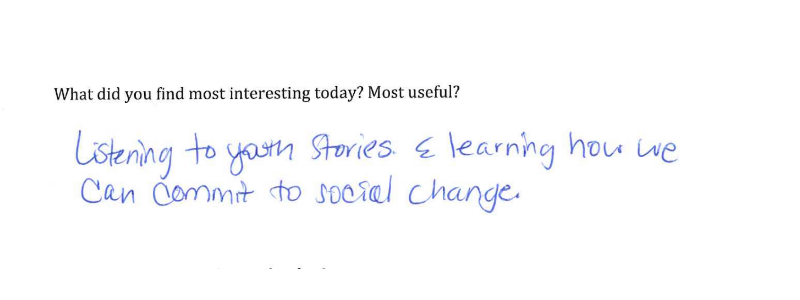 What did you find most interesting today? Most useful?
Listening to youth stories. & learning how we
Can Commit to social change.